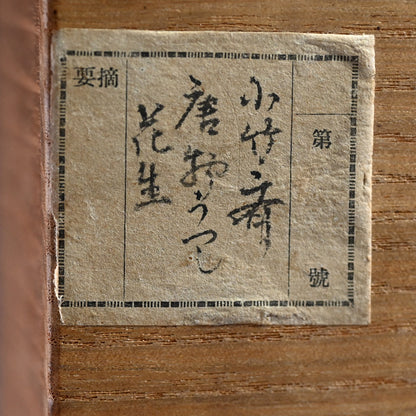 第 號
小竹斎
唐物うつし
花生
摘要